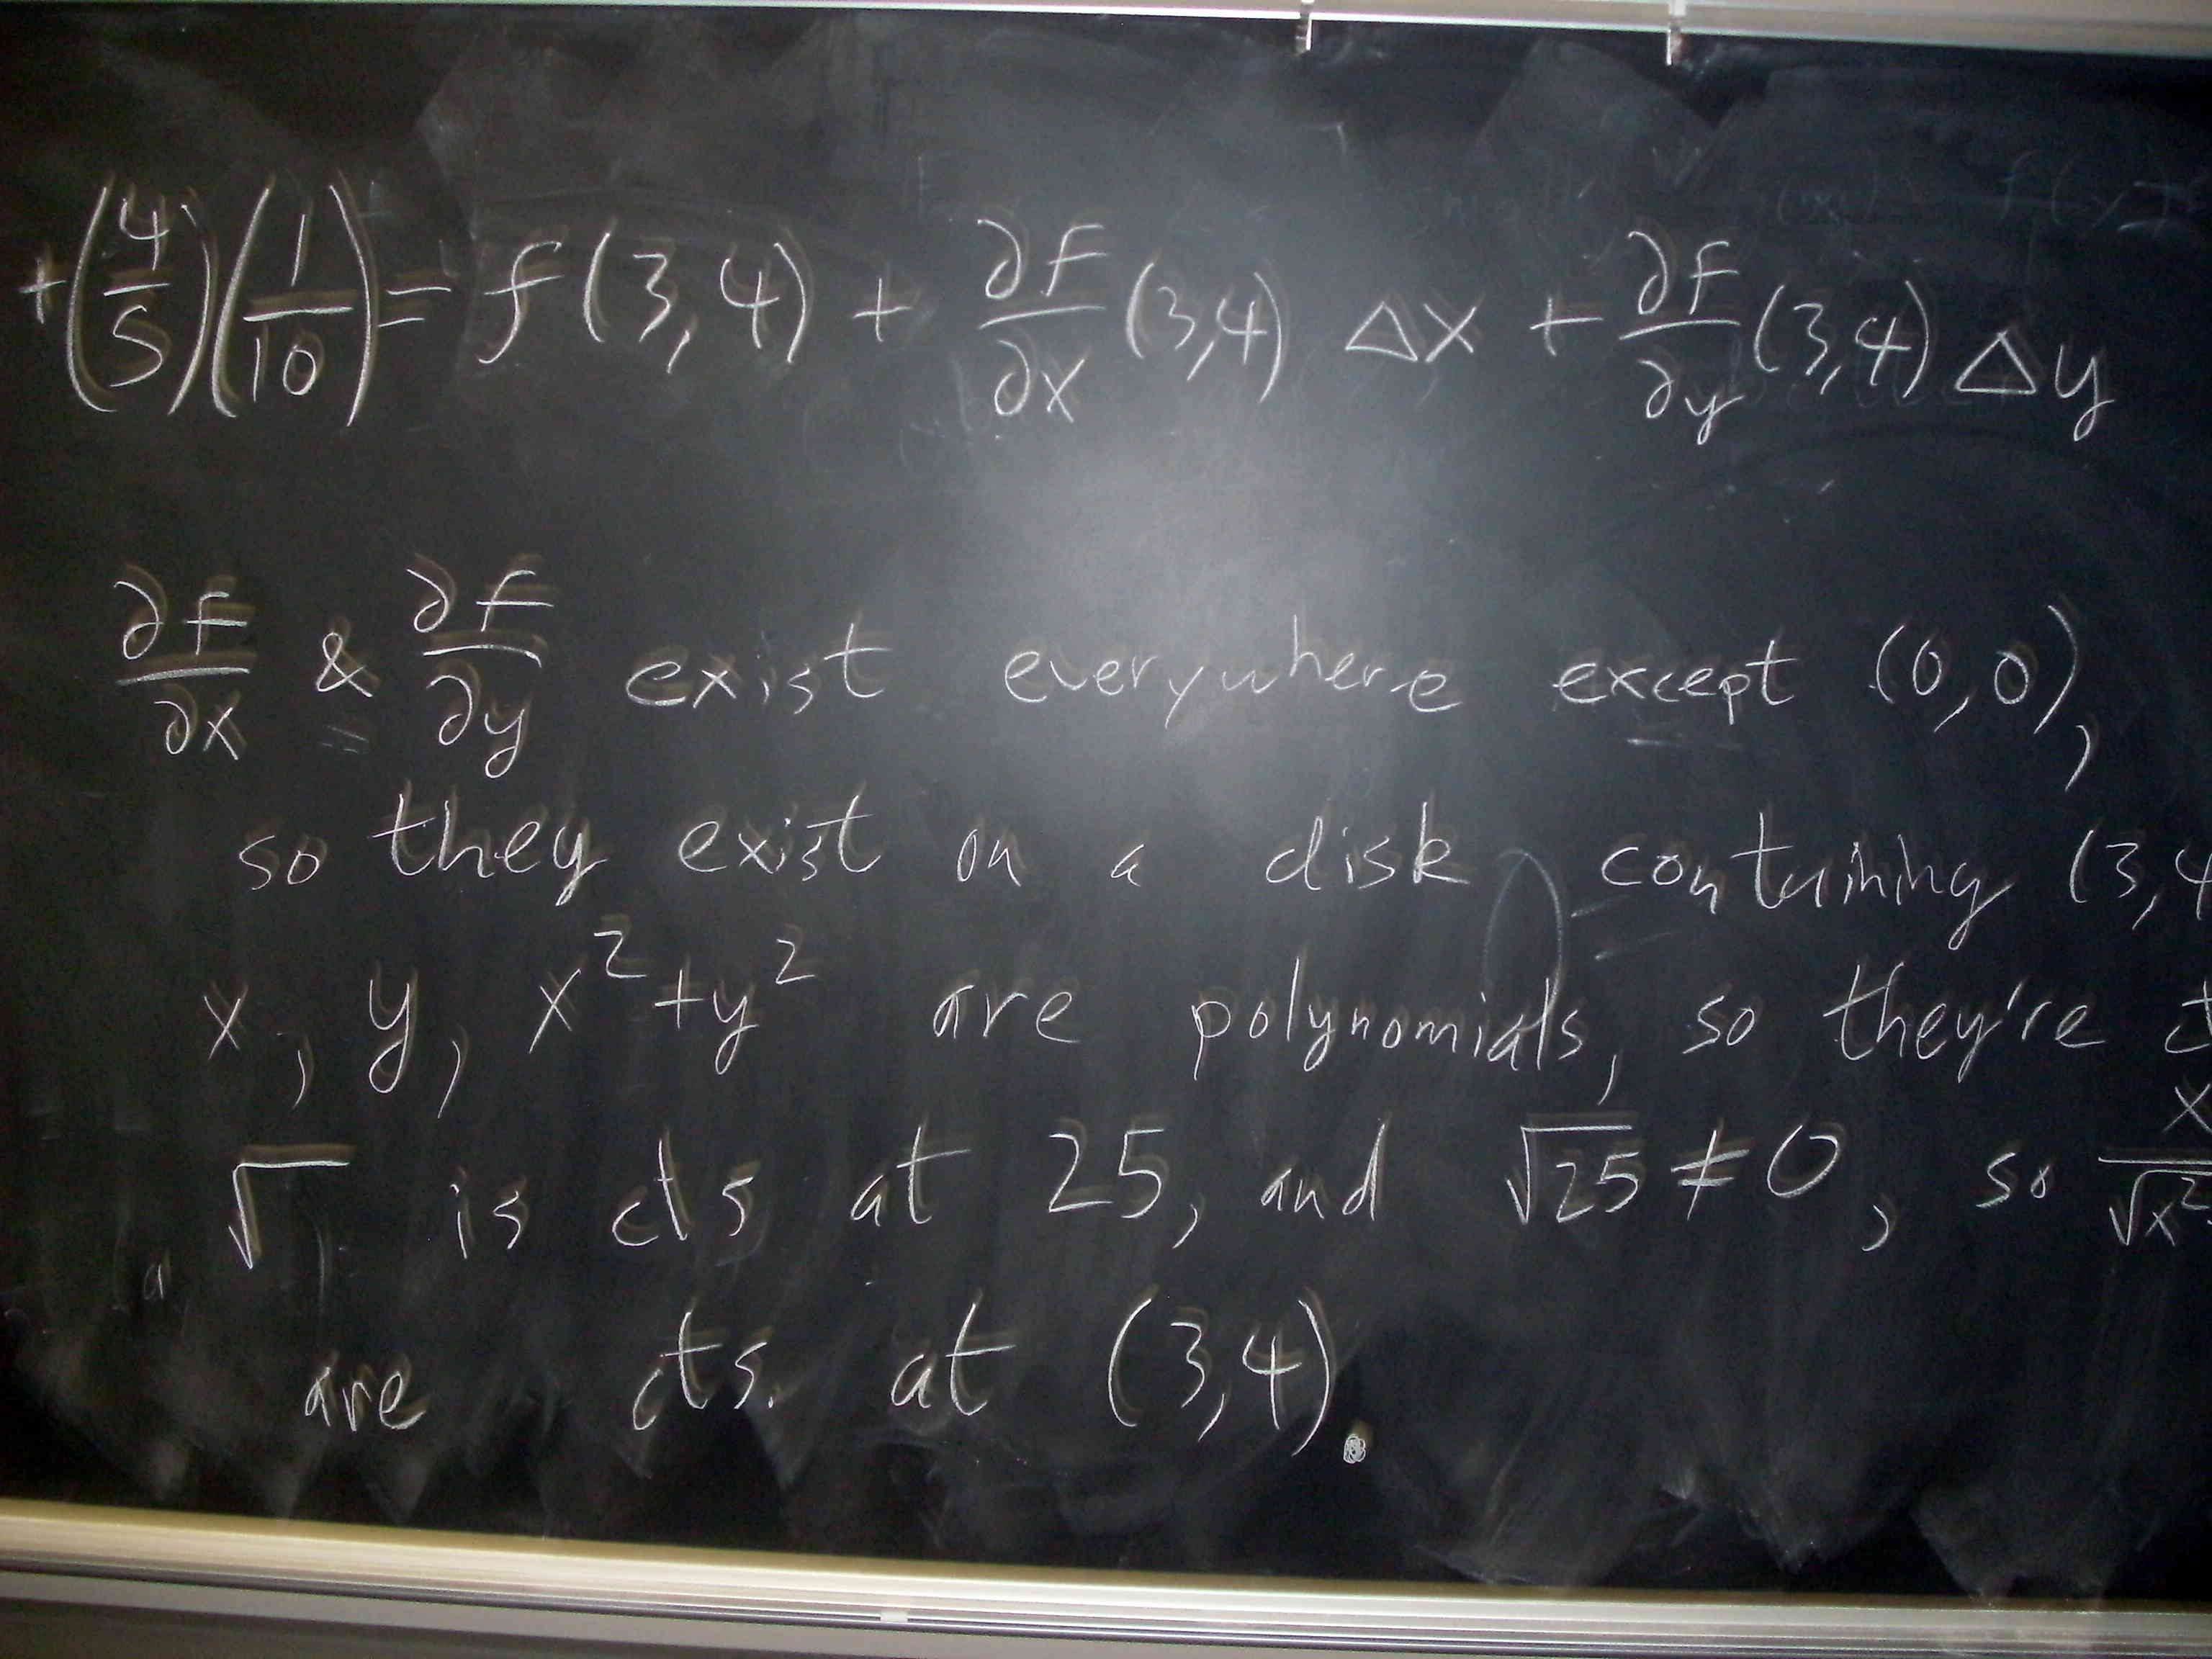 +(4/5)(1/10) = f(3,4) + ∂f/∂x (3,4) Δx + ∂f/∂y (3,4) Δy
∂f/∂x & ∂f/∂y exist everywhere except (0,0),
so they exist on a disk containing (3,4
x, y, x²+y² are polynomials, so they're
√ is cts at 25, and √25 ≠ 0, so x/√x²
are cts. at (3,4).